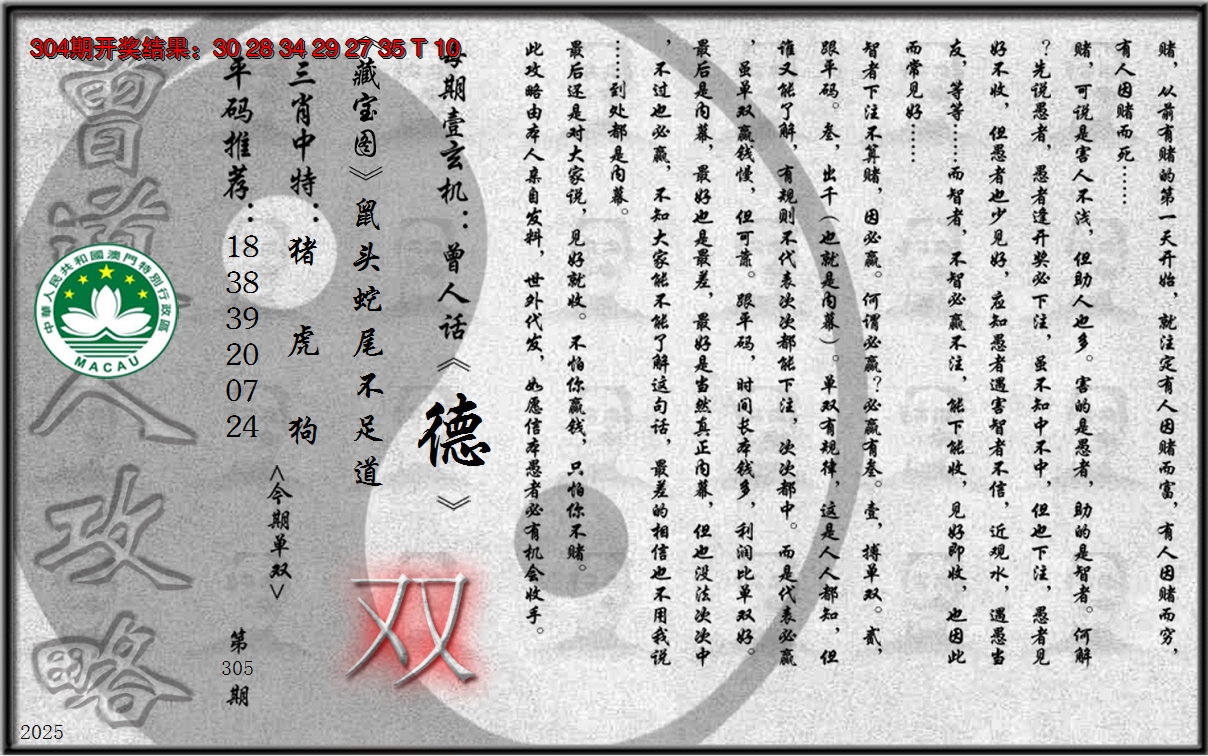 304期开奖结果：30 28 34 29 27 35 T 10
赌，从前有赌的第一天开始，就注定有人因赌而富，有人因赌而穷，
有人因赌而死……
赌，可说是害人不浅，但助人也多。害的是愚者，助的是智者。何解
？先说愚者，愚者逢开奖必下注，虽不知中不中，但也下注，愚者见
好不收，但愚者也少见好，应知愚者遇害智者不信，近观水，遇愚当
友，等等……而智者，不智必赢不注，能下能收，见好即收，也因此
而常见好……
智者下注不算赌，因必赢。何谓必赢？必赢有叁。壹，搏单双。贰，
跟平码。叁，出千（也就是内幕）。单双有规律，这是人人都知，但
谁又能了解，有规则不代表次次都能下注，次次都中。而是代表必赢
，虽单双赢钱慢，但可靠。跟平码，时间长本钱多，利润比单双好。
最后是内幕，最好也是最差，最好是当然真正内幕，但也没法次次中
，不过也必赢，不知大家能不能了解这句话，最差的相信也不用我说
……到处都是内幕。
最后还是对大家说，见好就收。不怕你赢钱，只怕你不赌。
此攻略由本人亲自发料，世外代发，如愿信本愚者必有机会收手。
每期壹玄机：曾人话《德》
《藏宝图》鼠头蛇尾不足道
双
三肖中特：猪 虎 狗
<今期单双>
平码推荐：
18
38
39
20
07
24
第
305
期
曾道人攻略
中華人民共和國澳門特別行政區
MACAU
2025